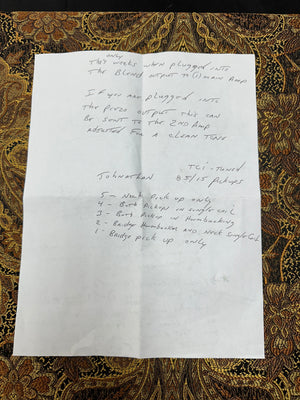 only
This works when plugged into
The Blend output to (1) main Amp
If you are plugged into
The piezo output this can
be sent to the 2nd Amp
adjusted for a clean tone
TCI - tuned
Johnathan 85/15 pickups
5 - Neck pick up only
4 - Both Pickup in single coil
3 - Both Pickup in Humbucking
2 - Bridge Humbucker and Neck Single Coil
1 - Bridge pick up only